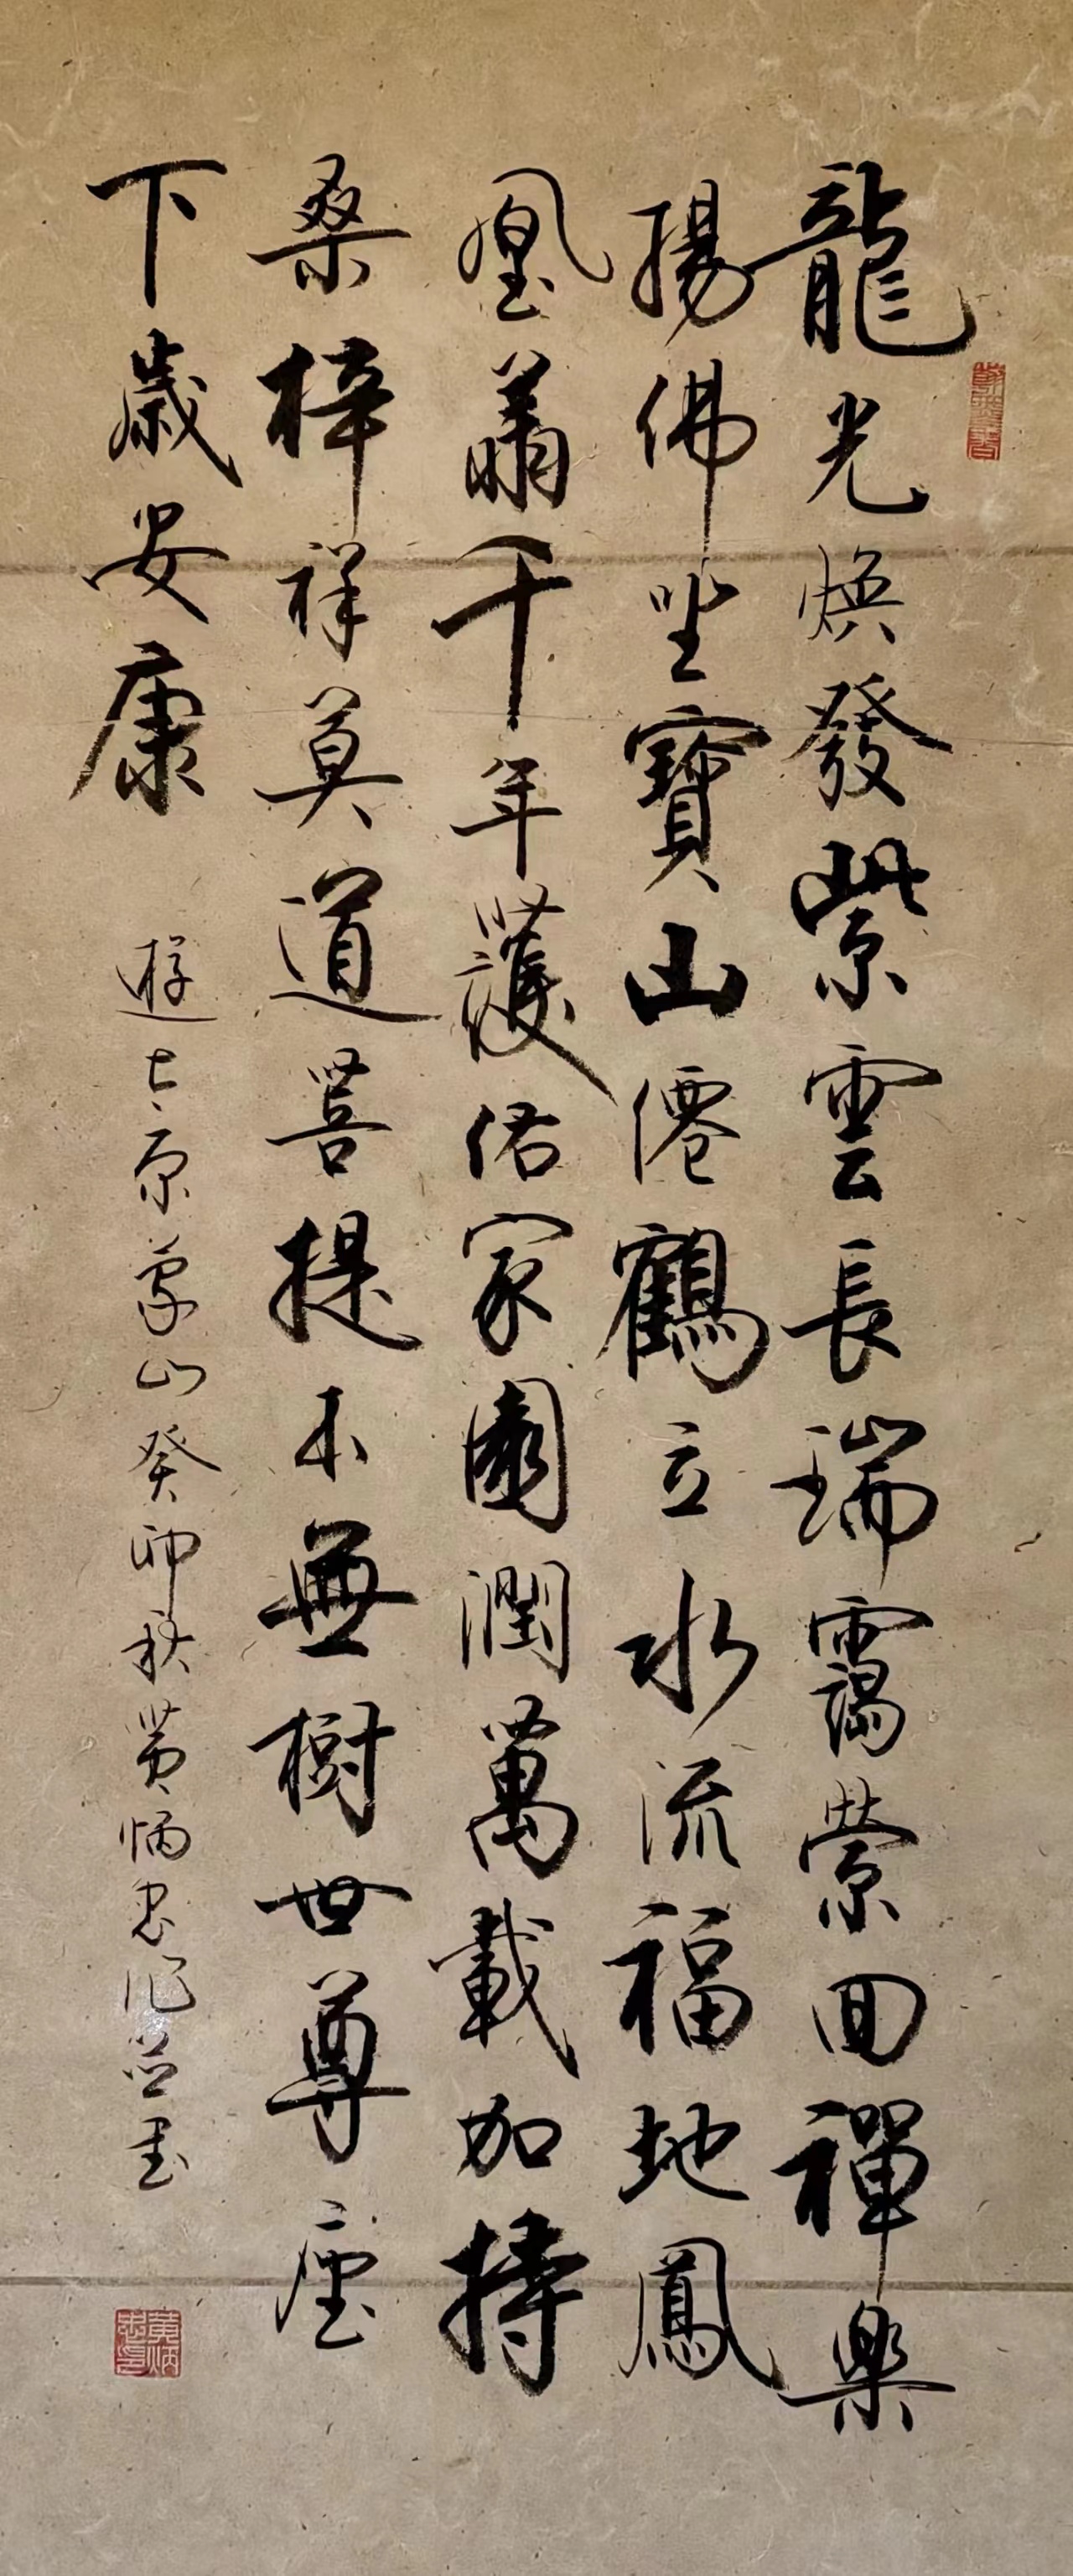 龍光煥發紫雲長瑞靄縈回禪樂
揚佛坐寶山僊鶴立水流福地鳳
凰翥千年護佑家園潤萬載加持
桑梓祥莫道菩提本無樹世尊座
下歲安康
遊太原蒙山癸卯秋黃炳忠作並書
黃炳忠印